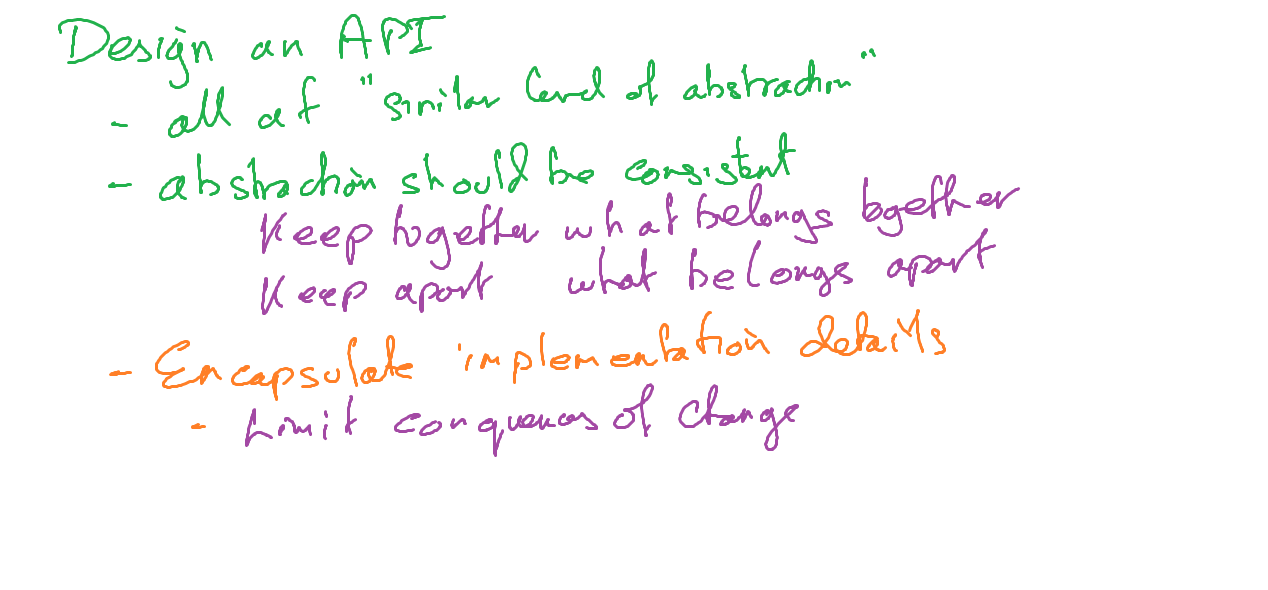 Design an API
- all at "similar level of abstraction"
- abstraction should be consistent
Keep together what belongs together
Keep apart what belongs apart
- Encapsulate implementation details
- Limit conquences of change